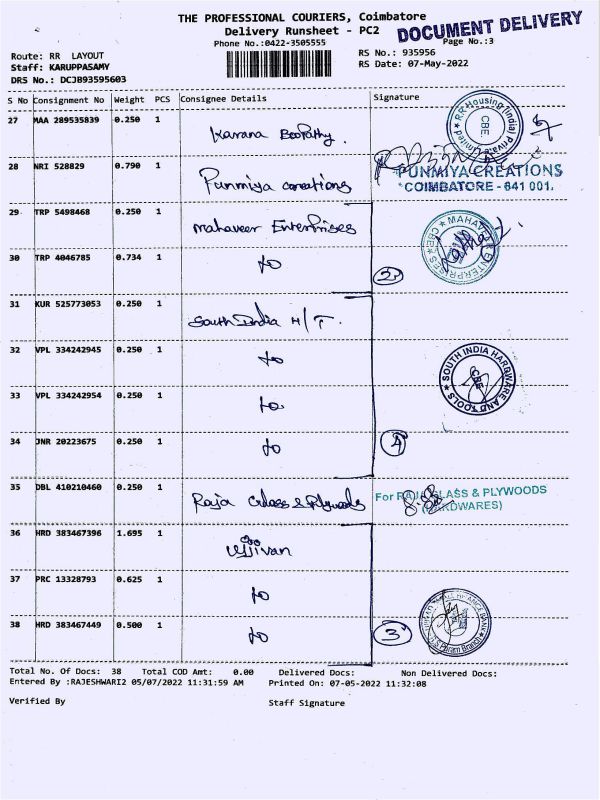 THE PROFESSIONAL COURIERS, Coimbatore
Delivery Runsheet - PC2
DOCUMENT DELIVERY
Phone No.:0422-3505555
Page No.:3
Route: RR LAYOUT
RS No.: 935956
Staff: KARUPPASAMY
RS Date: 07-May-2022
DRS No.: DCJB93595603
S No Consignment No Weight PCS Consignee Details Signature
27 MAA 289535839 0.250 1
RR Housing (India) Private Limited
CBE
28 NRI 528829 0.790 1 Punmiya creations
PUNMIYA CREATIONS
COIMBATORE - 641 001.
29 TRP 5498468 0.250 1 Mahaveer Enterprises
MAHAVEER ENTERPRISES
CBE
30 TRP 4046785 0.734 1 to 2
31 KUR 525773053 0.250 1 South India H/T.
32 VPL 334242945 0.250 1 to
SOUTH INDIA HARDWARE AND TOOLS
CBE
33 VPL 334242954 0.250 1 to
34 JNR 20223675 0.250 1 to 4
35 DBL 410210460 0.250 1 Raja Glass & Plywoods
For RAJA GLASS & PLYWOODS
(HARDWARES)
36 HRD 383467396 1.695 1 Ujjivan
37 PRC 13328793 0.625 1 to
38 HRD 383467449 0.500 1 to 3
Total No. Of Docs: 38 Total COD Amt: 0.00 Delivered Docs: Non Delivered Docs:
Entered By :RAJESHWARI2 05/07/2022 11:31:59 AM Printed On: 07-05-2022 11:32:08
Verified By Staff Signature